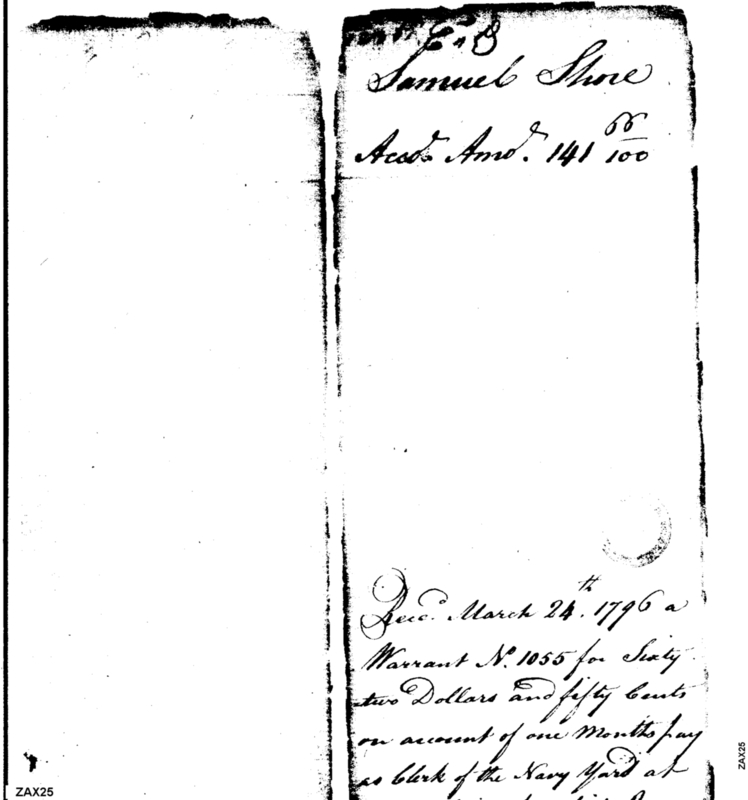 E & B
Samuel Shore
Accot. Amot. 141 66/100
Recd. March 24th. 1796 a
Warrant No. 1055 for Sixty
two Dollars and fifty Cents
on account of one Months pay
as Clerk of the Navy Yard at
ZAX25
ZAX25